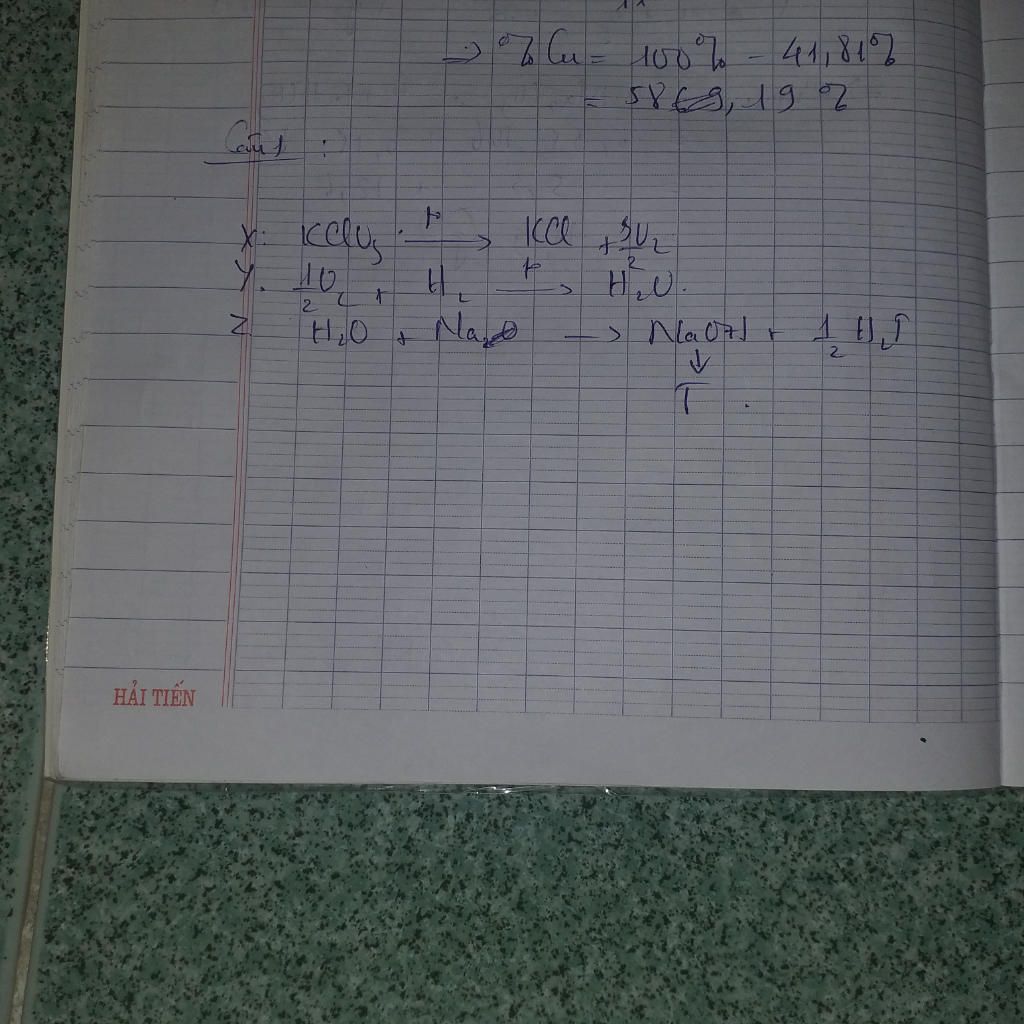 => % Cu = 100% - 41,81%
= 58,19 %
Câu 1 :
X: KClO3 t° → KCl + 3/2 O2
Y. 1/2 O2 + H2 t° → H2O.
Z H2O + Na → NaOH + 1/2 H2↑
↓
T .
HẢI TIẾN